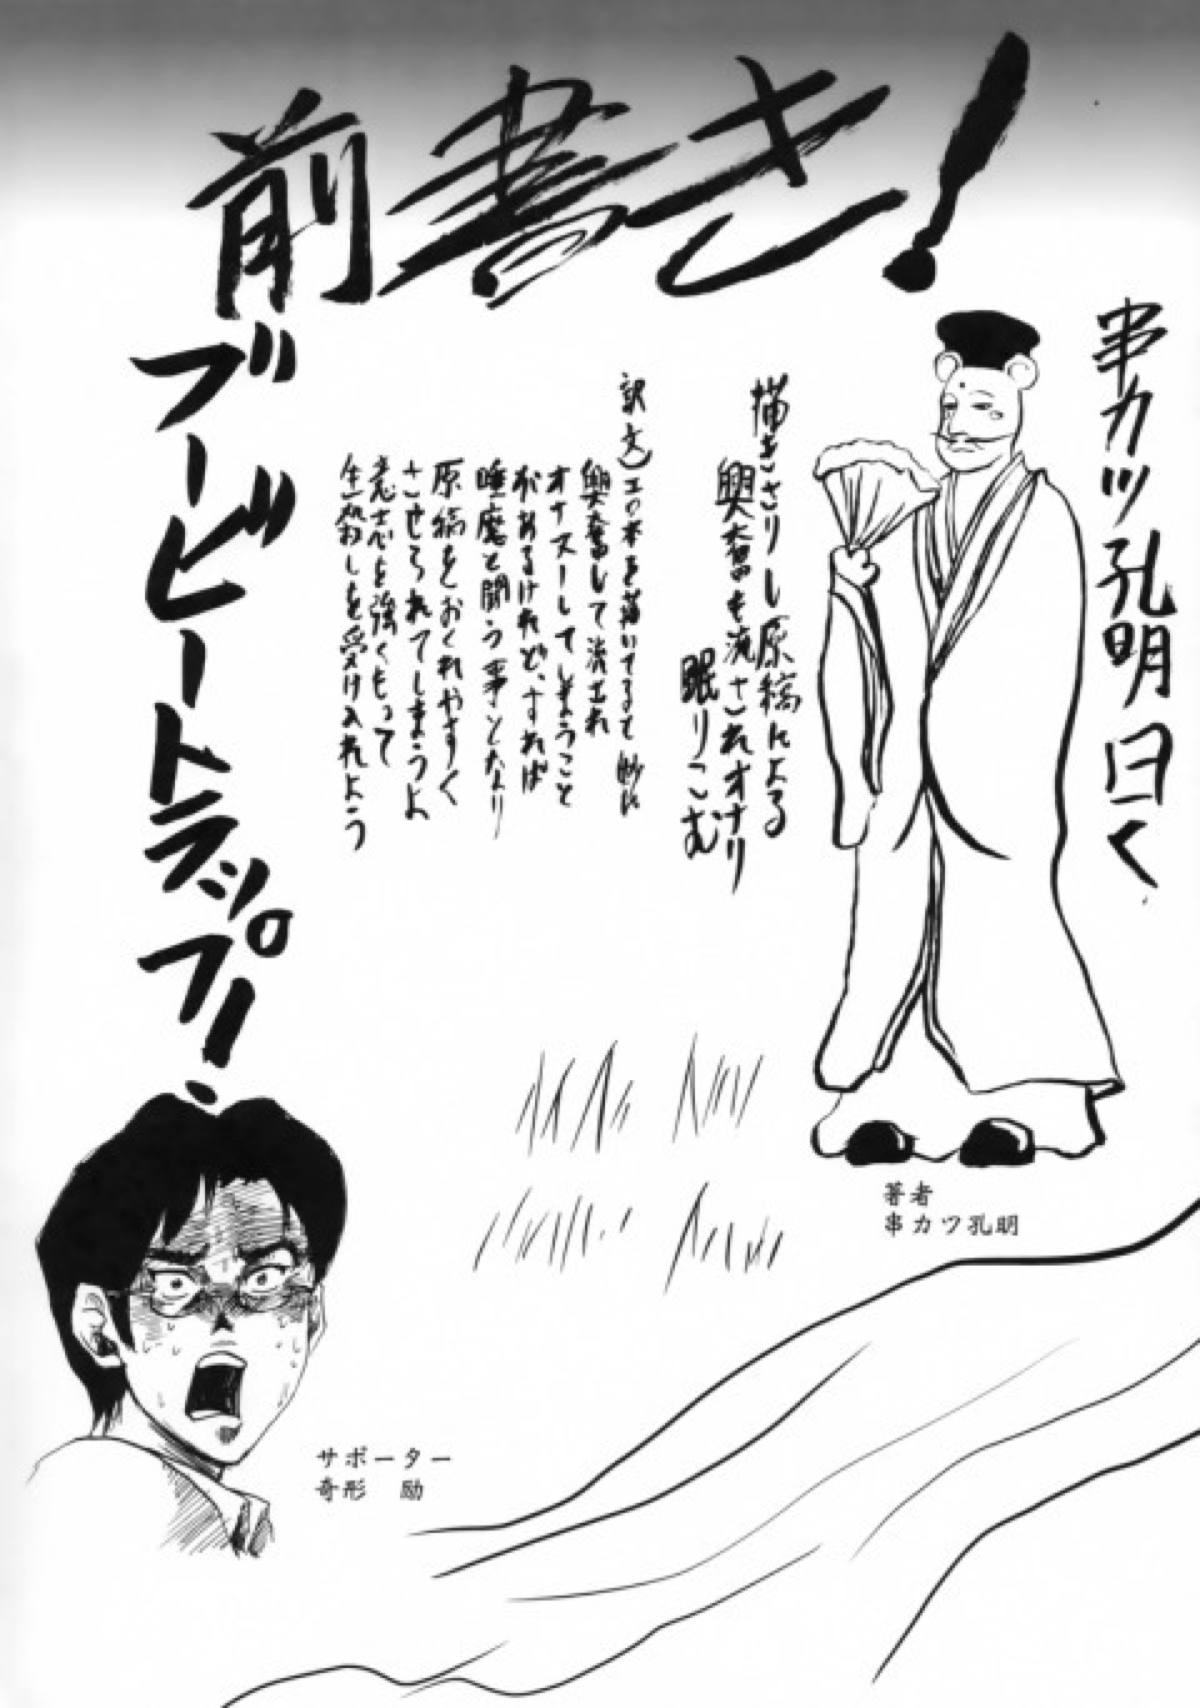 前書き!
串カツ孔明曰く
描きさりし原稿による
興奮も流されオナり
眠りこむ
訳文)エロ本を描いてると妙に
興奮して流され
オナヌーしてしまうこと
があるけれど、すれば
睡魔と闘う事となり
原稿をおくれやすく
させられてしまうよ
意志を強くもって
生殺しを受け入れよう
ブービートラップ!
著者
串カツ孔明
サポーター
奇形 励